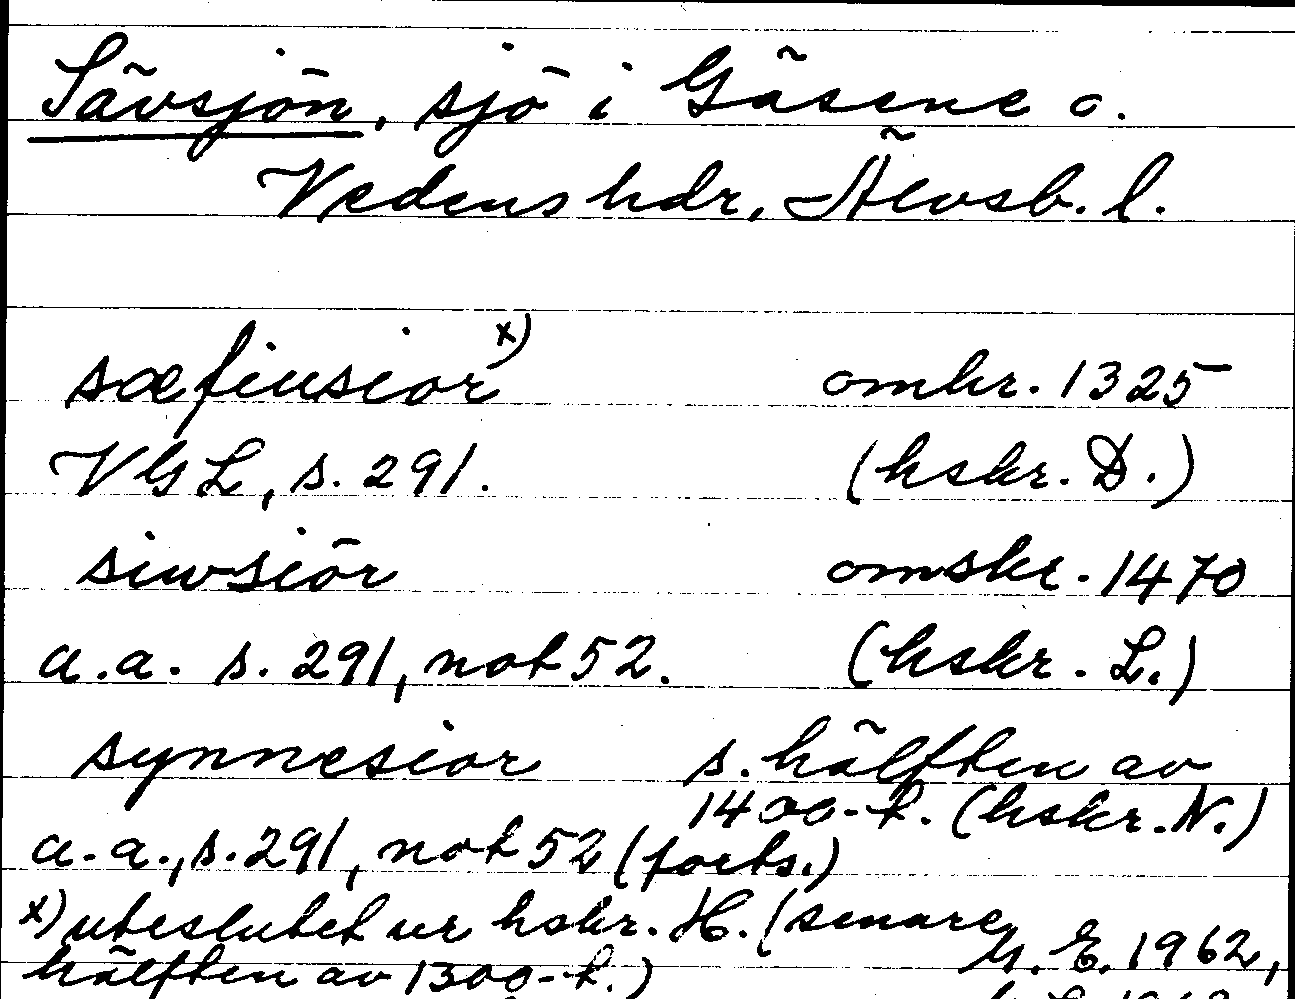 Sävsjön, sjö i Gäsene o.
Vedens hdr, Älvsb. l.
sæfiusior x) omkr. 1325
VGL, s. 291. (hskr. D.)
siwsiör omskr. 1470
a.a. s. 291, not 52. (hskr. L.)
synnesior s. hälften av
1400-t. (hskr. N.)
a.a., s. 291, not 52 (forts.)
x) uteslutet ur hskr. H. (senare
hälften av 1300-t.)
M. E. 1962,